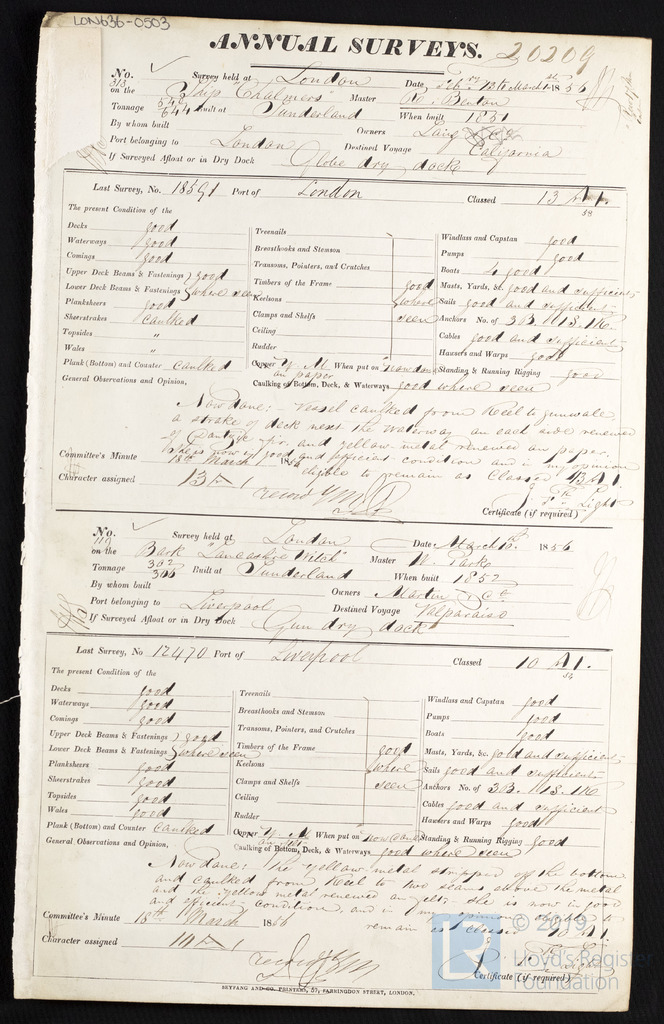 LON636-0503
ANNUAL SURVEYS. 20209
No. 313 Survey held at London Date Feby 12 to March 1st 1856
on the Ship "Chalmers" Master Benton
Tonnage Built at Sunderland When built 1851
By whom built Owners Laing & Co
Port belonging to London Destined Voyage California
If Surveyed Afloat or in Dry Dock Globe dry dock
Last Survey, No. 18591 Port of London Classed 13 A1.
58
The present Condition of the
Decks good Treenails Windlass and Capstan good
Waterways good Breasthooks and Stemson Pumps good
Comings good Transoms, Pointers, and Crutches Boats 4 good
Upper Deck Beams & Fastenings good Timbers of the Frame good Masts, Yards, &c. good and sufficient
Lower Deck Beams & Fastenings where seen Keelsons where Sails good and sufficient
Planksheers good Clamps and Shelfs seen Anchors No. of 3B. 1S. 1K.
Sheerstrakes caulked Ceiling Cables good and sufficient
Topsides " Rudder Hausers and Warps good
Wales " Copper Y. M. When put on now done Standing & Running Rigging good
Plank (Bottom) and Counter caulked on paper Caulking of Bottom, Deck, & Waterways good where seen
General Observations and Opinion,
Now done: Vessel caulked from Keel to gunwale,
a strake of deck next the waterway on each side renewed
of Dantzic fir, and yellow metal renewed on paper.
She is now in good and efficient condition and in my opinion
eligible to remain as Classed 13 A1
Committee's Minute 18th March 1856
Character assigned 13 A 1 Light
record YM
Certificate (if required)
No. 119 Survey held at London Date March 15 1856
on the Bark "Lancashire Witch" Master W. Parke
Tonnage Built at Sunderland When built 1852
By whom built Owners Martin & Co
Port belonging to Liverpool Destined Voyage Valparaiso
If Surveyed Afloat or in Dry Dock Gun dry dock
Last Survey, No. 12470 Port of Liverpool Classed 10 A1.
The present Condition of the
Decks good Treenails Windlass and Capstan good
Waterways good Breasthooks and Stemson Pumps good
Comings good Transoms, Pointers, and Crutches Boats good
Upper Deck Beams & Fastenings good Timbers of the Frame good Masts, Yards, &c. good and sufficient
Lower Deck Beams & Fastenings where seen Keelsons where Sails good and sufficient
Planksheers good Clamps and Shelfs seen Anchors No. of 3B. 1S. 1K.
Sheerstrakes good Ceiling Cables good and sufficient
Topsides good Rudder Hawsers and Warps good
Wales good Copper Y. M. When put on now done Standing & Running Rigging good
Plank (Bottom) and Counter caulked on felt Caulking of Bottom, Deck, & Waterways good where seen
General Observations and Opinion,
Now done: The yellow metal stripped off the bottom
and caulked from Keel to two seams above the metal
and the yellow metal renewed on felt. She is now in good
and efficient condition, and in my opinion eligible to
remain as Classed 10 A1
Committee's Minute 18th March 1856
Character assigned 10 A 1
record YM
Certificate (if required)
SEYFANG AND CO. PRINTERS, 57, FARRINGDON STREET, LONDON.
© 2019
Lloyd's Register
Foundation